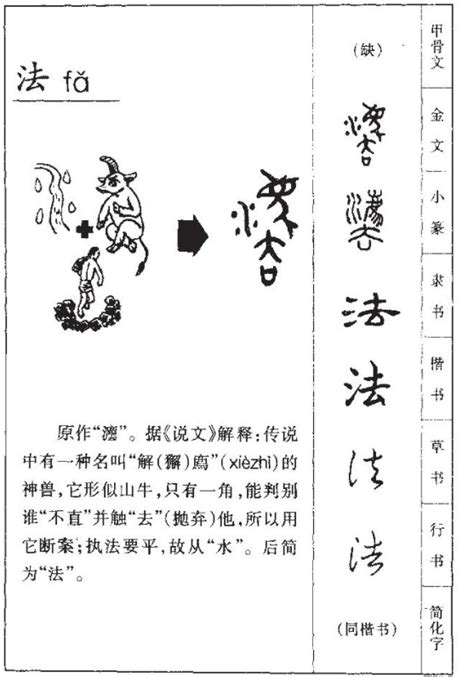 法 fǎ
原作“灋”。据《说文》解释：传说
中有一种名叫“解(獬)廌”(xièzhì)的
神兽，它形似山牛，只有一角，能判别
谁“不直”并触“去”(抛弃)他，所以用
它断案；执法要平，故从“水”。后简
为“法”。
(缺)
灋
灋
法
法
法
法
(同楷书)
甲骨文
金文
小篆
隶书
楷书
草书
行书
简化字